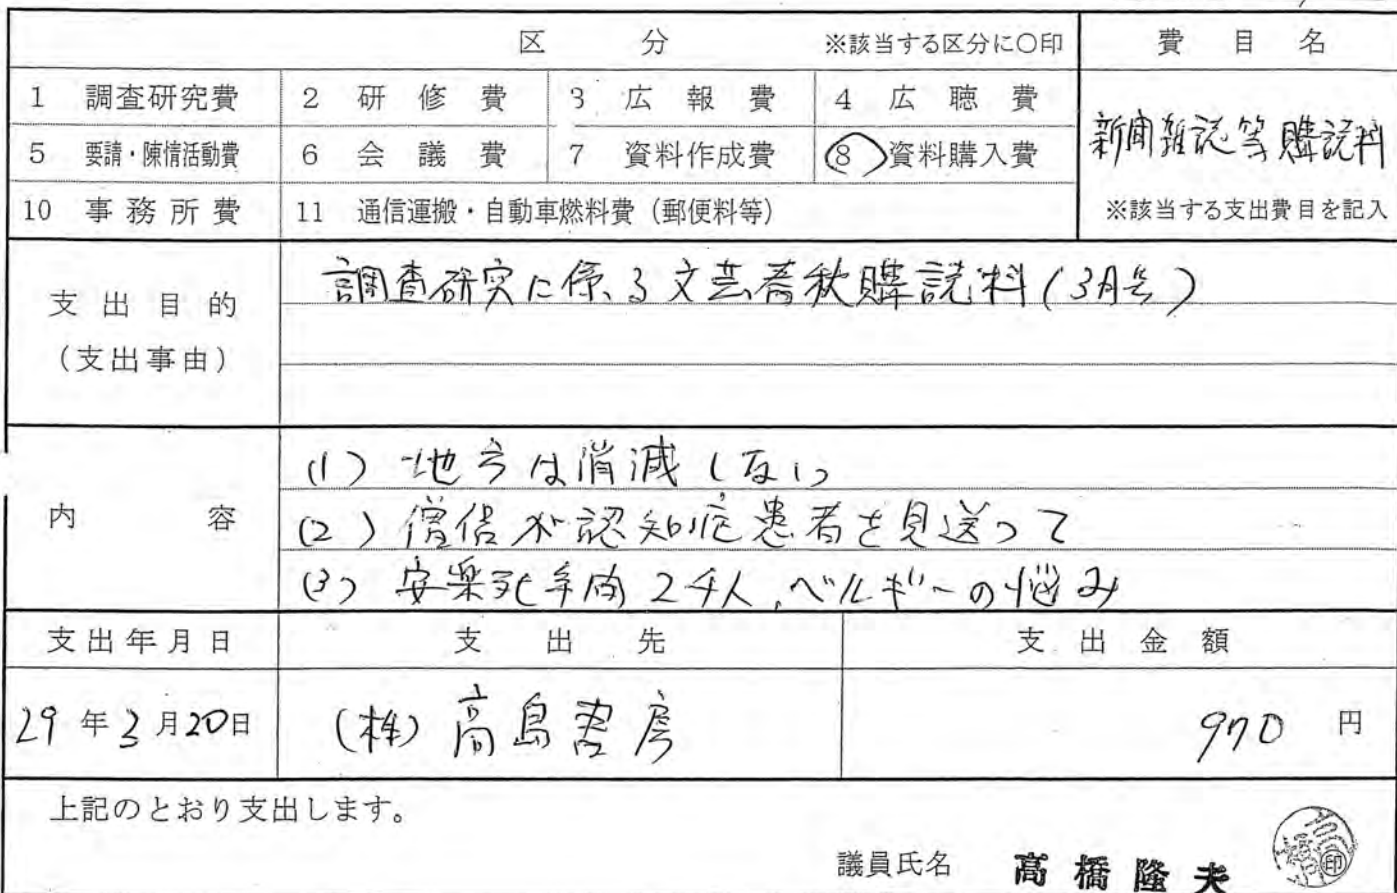 区 分 ※該当する区分に○印 費 目 名
1 調査研究費 2 研 修 費 3 広 報 費 4 広 聴 費
新聞雑誌等購読料
5 要請・陳情活動費 6 会 議 費 7 資料作成費 8 資料購入費
10 事務所費 11 通信運搬・自動車燃料費（郵便料等） ※該当する支出費目を記入
支出目的
（支出事由）
調査研究に係る文芸春秋購読料(3月号)
内 容
(1) 地方は消滅しない
(2) 僧侶が認知症患者を見送って
(3) 安楽死年間2千人、ベルギーの悩み
支出年月日 支 出 先 支 出 金 額
29年3月20日 (株)高島書房 970 円
上記のとおり支出します。
議員氏名 高橋隆夫 印